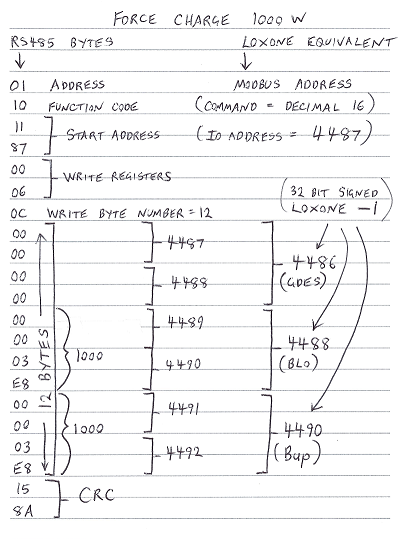 FORCE CHARGE 1000 W
RS485 BYTES LOXONE EQUIVALENT
01 ADDRESS MODBUS ADDRESS
10 FUNCTION CODE (COMMAND = DECIMAL 16)
11
START ADDRESS (IO ADDRESS = 4487)
87
00
WRITE REGISTERS
06
(32 BIT SIGNED
LOXONE -1)
0C WRITE BYTE NUMBER = 12
00
4487
00
4486
(GDES)
00
4488
00
00
4489
00
1000
4488
(BLO)
03
4490
E8
12 BYTES
00
4491
00
1000
4490
(Bup)
03
4492
E8
15
CRC
8A